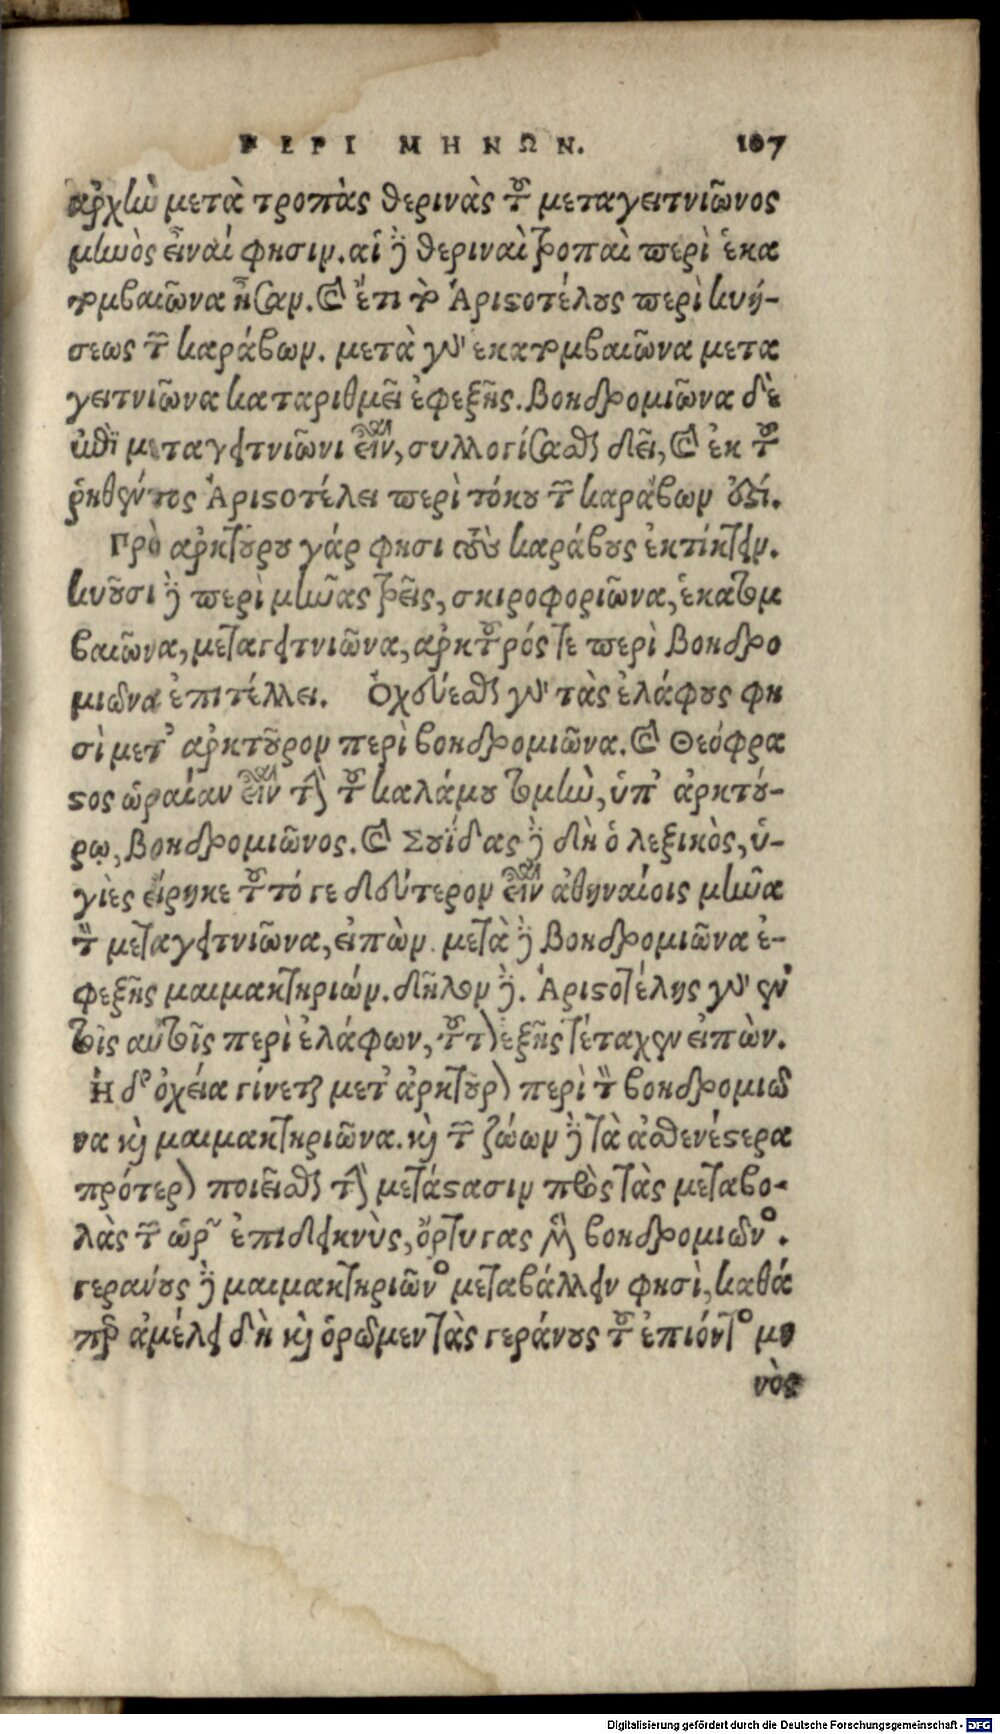 ΠΕΡΙ ΜΗΝΩΝ. 107
ἀρχὴν μετὰ τροπὰς θερινὰς τοῦ μεταγειτνιῶνος
μηνὸς εἶναί φησιν. αἱ δὲ θεριναὶ τροπαὶ περὶ ἑκα
τομβαιῶνα ἦσαν. καὶ ἔτι τὸ Ἀριστοτέλους περὶ κυή-
σεως τῶν καράβων. μετὰ γὸ ἑκατομβαιῶνα μετα
γειτνιῶνα καταριθμεῖ ἐφεξῆς. Βοηδρομιῶνα δὲ
ἐπὶ μεταγειτνιῶνι εἶναι, συλλογίσασθαι δεῖ, καὶ ἐκ τοῦ
ῥηθέντος Ἀριστοτέλει περὶ τόκου τῶν καράβων οὑτωσί.
Πρὸ ἀρκτούρου γάρ φησι τοὺς καράβους ἐκτίκτειν.
κυοῦσι δὲ περὶ μῆνας τρεῖς, σκιροφοριῶνα, ἑκατομ
βαιῶνα, μεταγειτνιῶνα, ἀρκτοῦρός τε περὶ Βοηδρο
μιῶνα ἐπιτέλλει. Ὀχεύεσθαι γοῦν τὰς ἐλάφους φη
σὶ μετ' ἀρκτοῦρον περὶ βοηδρομιῶνα. καὶ Θεόφρα
στος ὡραίαν εἶναι τὴν τοῦ καλάμου τομὴν, ὑπ' ἀρκτού-
ρῳ, Βοηδρομιῶνος. καὶ Σουΐδας δὲ δὴ ὁ λεξικὸς, ὑ-
γιὲς εἴρηκε τοῦτό γε δεύτερον εἶναι ἀθηναίοις μῆνα
τὸν μεταγειτνιῶνα, εἰπὼν. μετὰ δὲ Βοηδρομιῶνα ἐ-
φεξῆς μαιμακτηριών. δῆλον δέ. Ἀριστοτέλης γοῦν ἐν
τοῖς αὐτοῖς περὶ ἐλάφων, τοῦτον ἑξῆς τέταχεν εἰπὼν.
Ἡ δ' ὀχεία γίνεται μετ' ἀρκτοῦρον περὶ τὸν βοηδρομιῶ
να καὶ μαιμακτηριῶνα. καὶ τῶν ζώων δὲ τὰ ἀσθενέστερα
πρότερον ποιεῖσθαι τὴν μετάστασιν πρὸς τὰς μεταβο-
λὰς τῶν ὡρῶν ἐπιδεικνὺς, ὄρτυγας μὲν βοηδρομιῶνος.
γεράνους δὲ μαιμακτηριῶνος μεταβάλλειν φησὶ, καθά
περ ἀμέλει δὴ καὶ ὁρῶμεν τὰς γεράνους τοῦ ἐπιόντος μη
νὸς
Digitalisierung gefördert durch die Deutsche Forschungsgemeinschaft - DFG